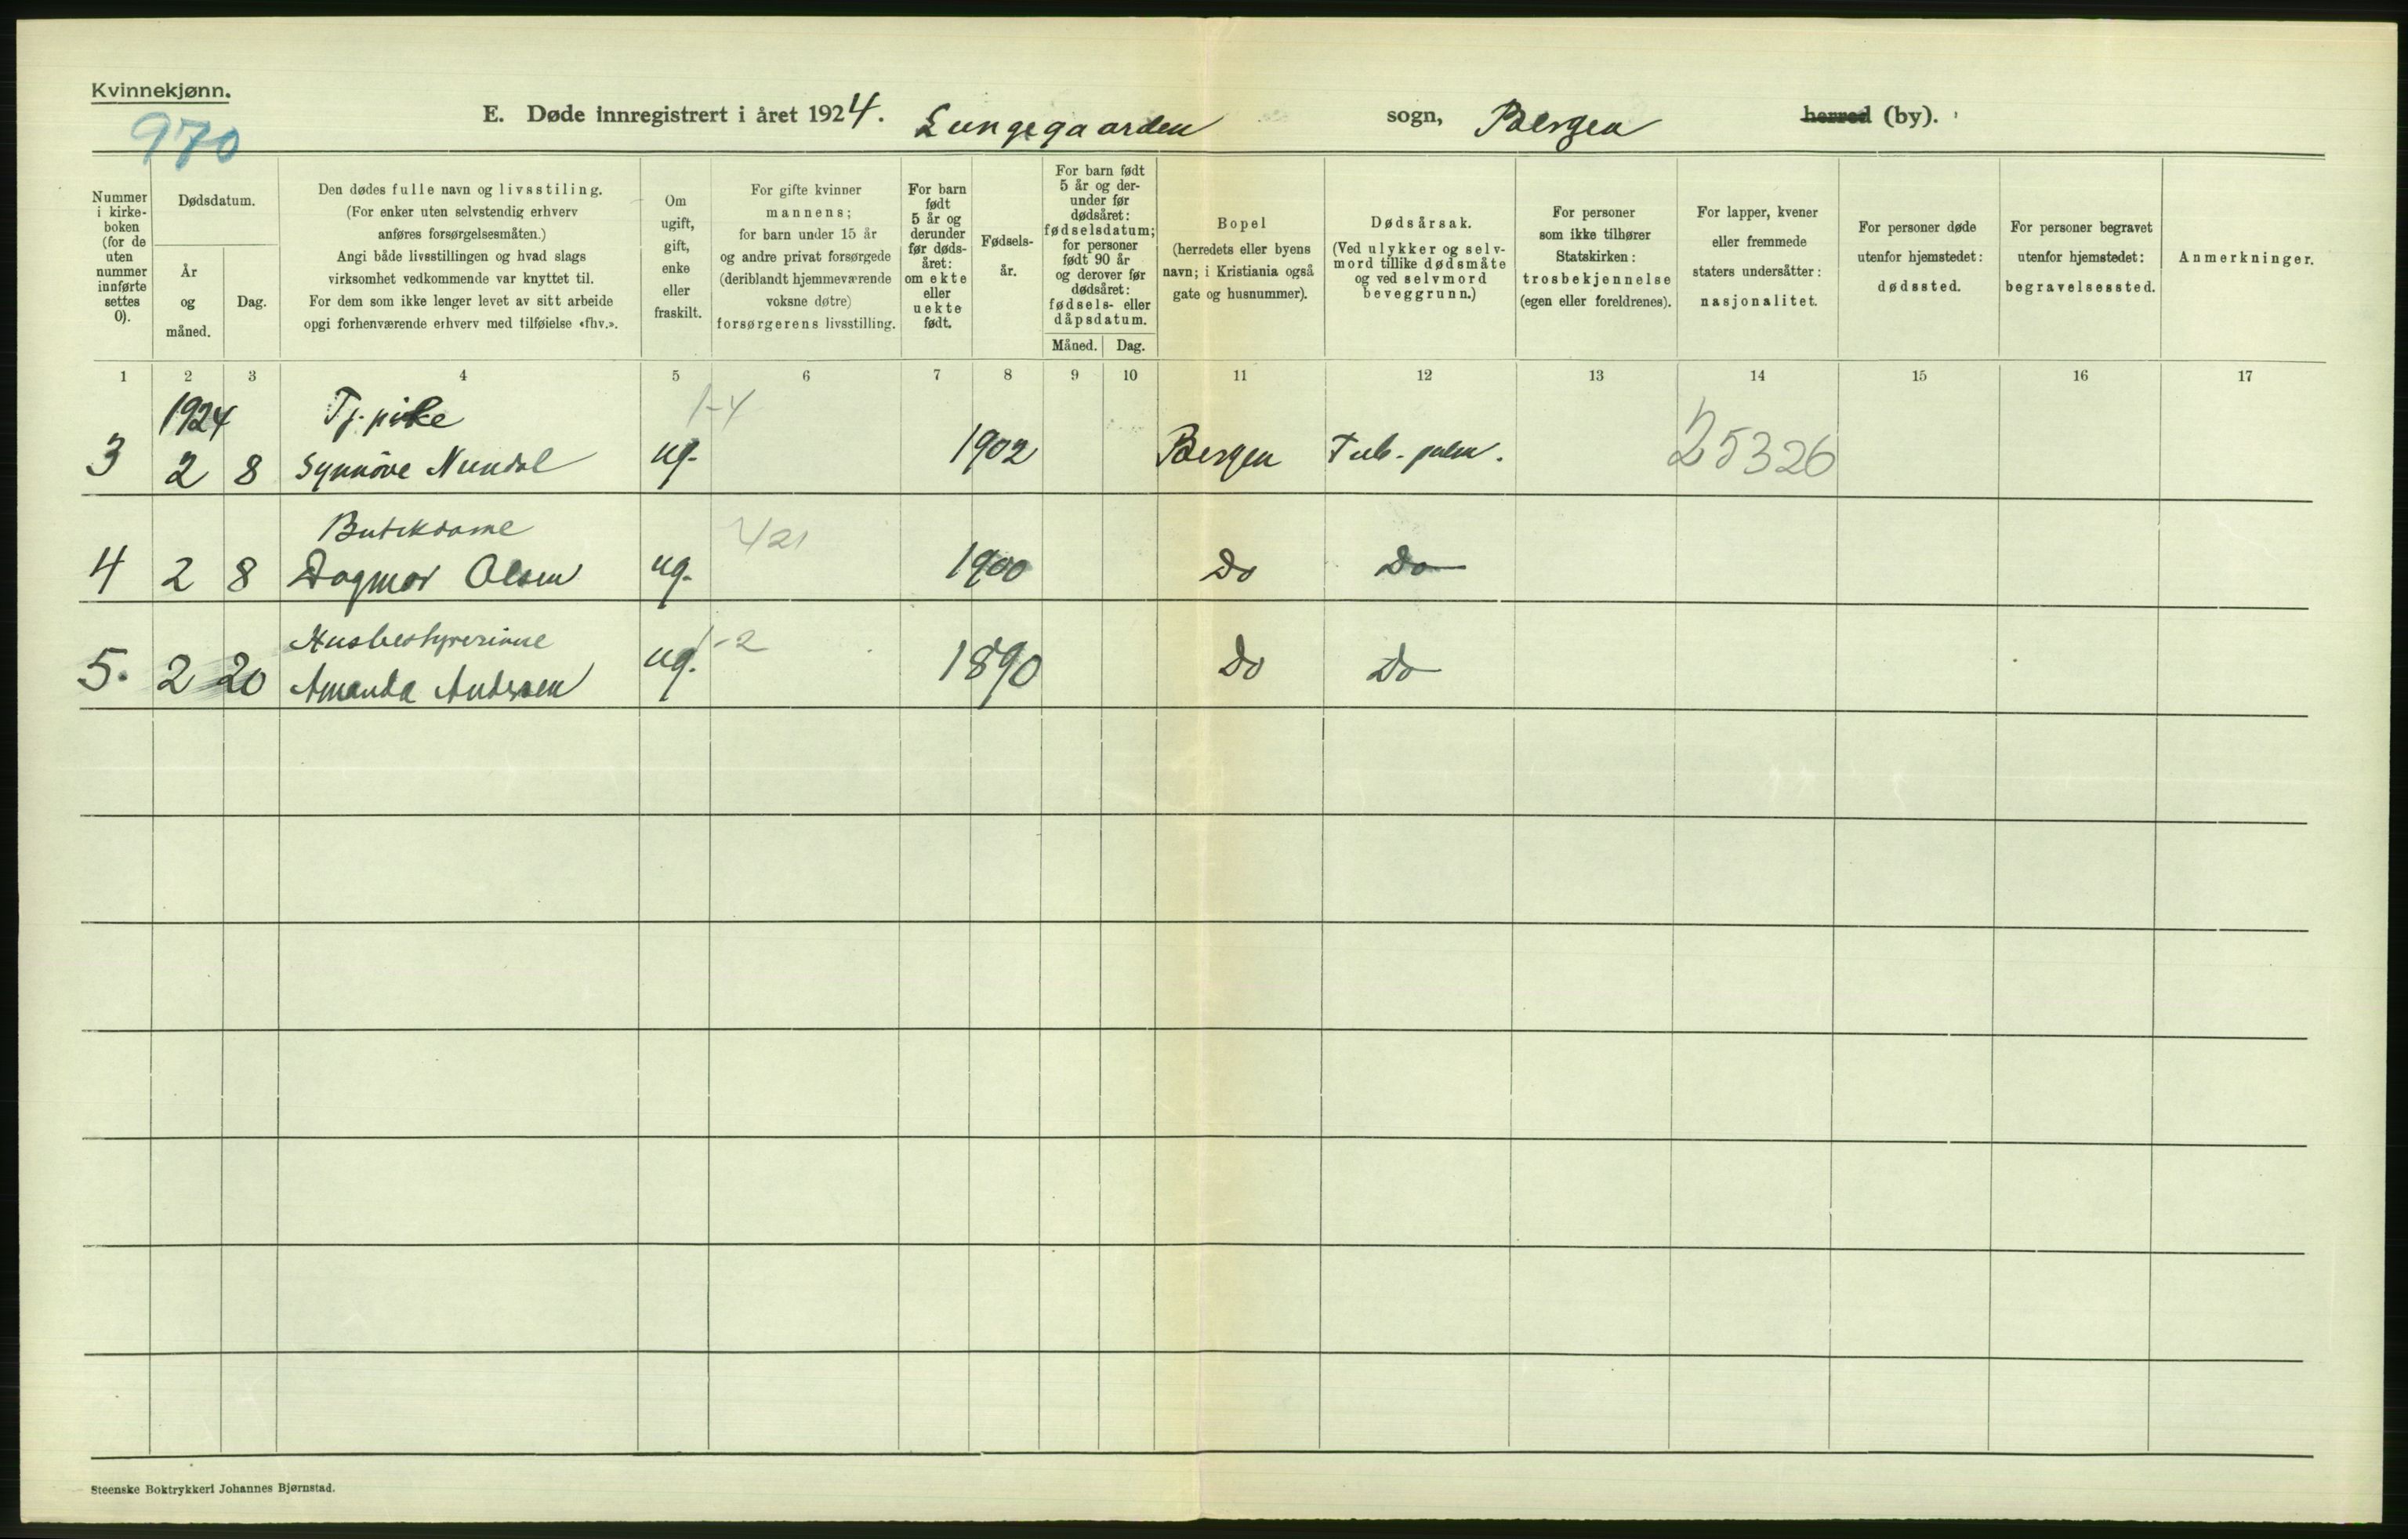 Kvinnekjønn.
970
E. Døde innregistrert i året 1924. Lungegaarden sogn, Bergen herred (by).
Nummer i kirke- boken (for de uten nummer innførte settes 0).
Dødsdatum.
År og måned.
Dag.
Den dødes fulle navn og livsstiling.
(For enker uten selvstendig erhverv
anføres forsørgelsesmåten.)
Angi både livsstillingen og hvad slags
virksomhet vedkommende var knyttet til.
For dem som ikke lenger levet av sitt arbeide
opgi forhenværende erhverv med tilføielse «fhv.».
Om
ugift,
gift,
enke
eller
fraskilt.
For gifte kvinner
mannens;
for barn under 15 år
og andre privat forsørgede
(deriblandt hjemmeværende
voksne døtre)
forsørgerens livsstilling.
For barn
født
5 år og
derunder
før døds-
året:
om ekte
eller
uekte
født.
Fødsels-
år.
For barn født
5 år og der-
under før
dødsåret:
fødselsdatum;
for personer
født 90 år
og derover før
dødsåret:
fødsels- eller
dåpsdatum.
Måned. Dag.
Bopel
(herredets eller byens
navn; i Kristiania også
gate og husnummer).
Dødsårsak.
(Ved ulykker og selv-
mord tillike dødsmåte
og ved selvmord
beveggrunn.)
For personer
som ikke tilhører
Statskirken:
trosbekjennelse
(egen eller foreldrenes).
For lapper, kvener
eller fremmede
staters undersåtter:
nasjonalitet.
For personer døde
utenfor hjemstedet:
dødssted.
For personer begravet
utenfor hjemstedet:
begravelsessted.
Anmerkninger.
1 2 3 4 5 6 7 8 9 10 11 12 13 14 15 16 17
1924 Tj. pike 1-4
3 2 8 Synnöve Nundal ug. 1902 Bergen Tub. pulm. 25326
Butikdame 421
4 2 8 Dagmar Olsen ug. 1900 Do Do
Husbestyrerinne 1-2
5. 2 20 Amanda Andersen ug. 1890 Do Do
Steenske Boktrykkeri Johannes Bjørnstad.